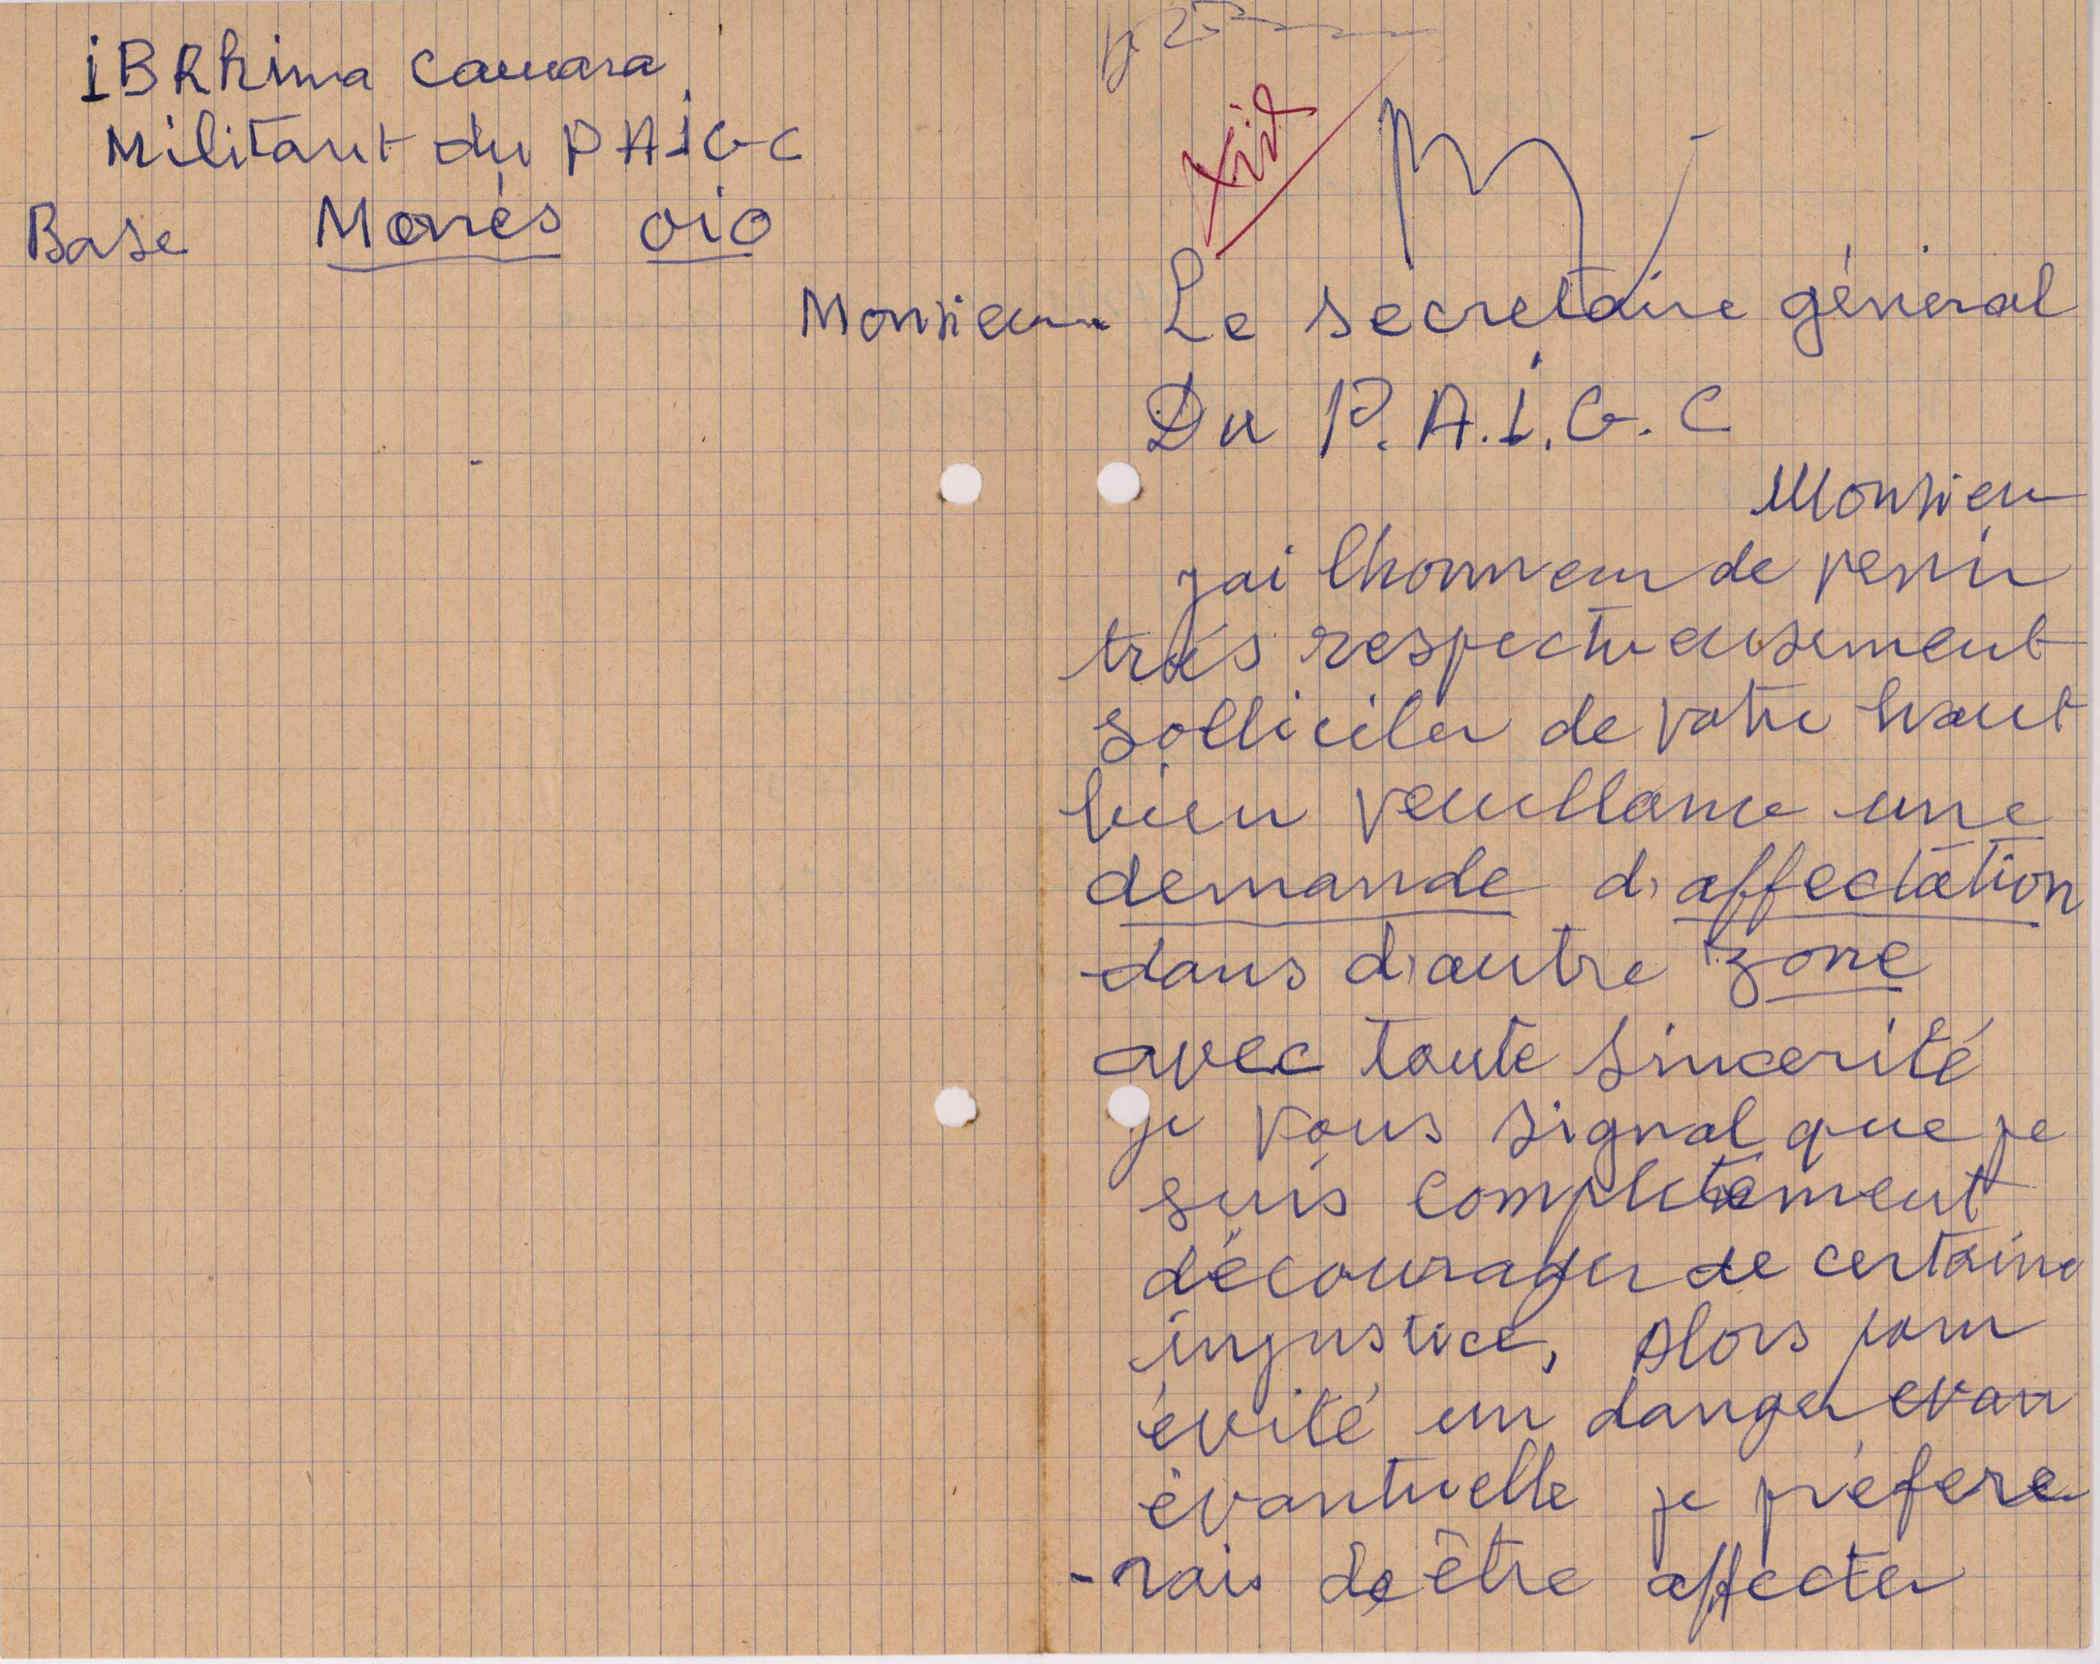 iBRhima camara
Militant du PAIGC
Base Morés oio
Monsieur Le secretaire géneral
Du P.A.I.G.C
Monsieur
jai lhonneur de venir
trés respectueusement
solliciter de votre haut
bien veuillance une
demande d'affectation
dans d'autre zone
avec toute sincerité
je vous signal que je
suis completement
décourager de certaine
injustice, Alors pour
évité un danger
évantuelle je préfere
-rais de être affecter